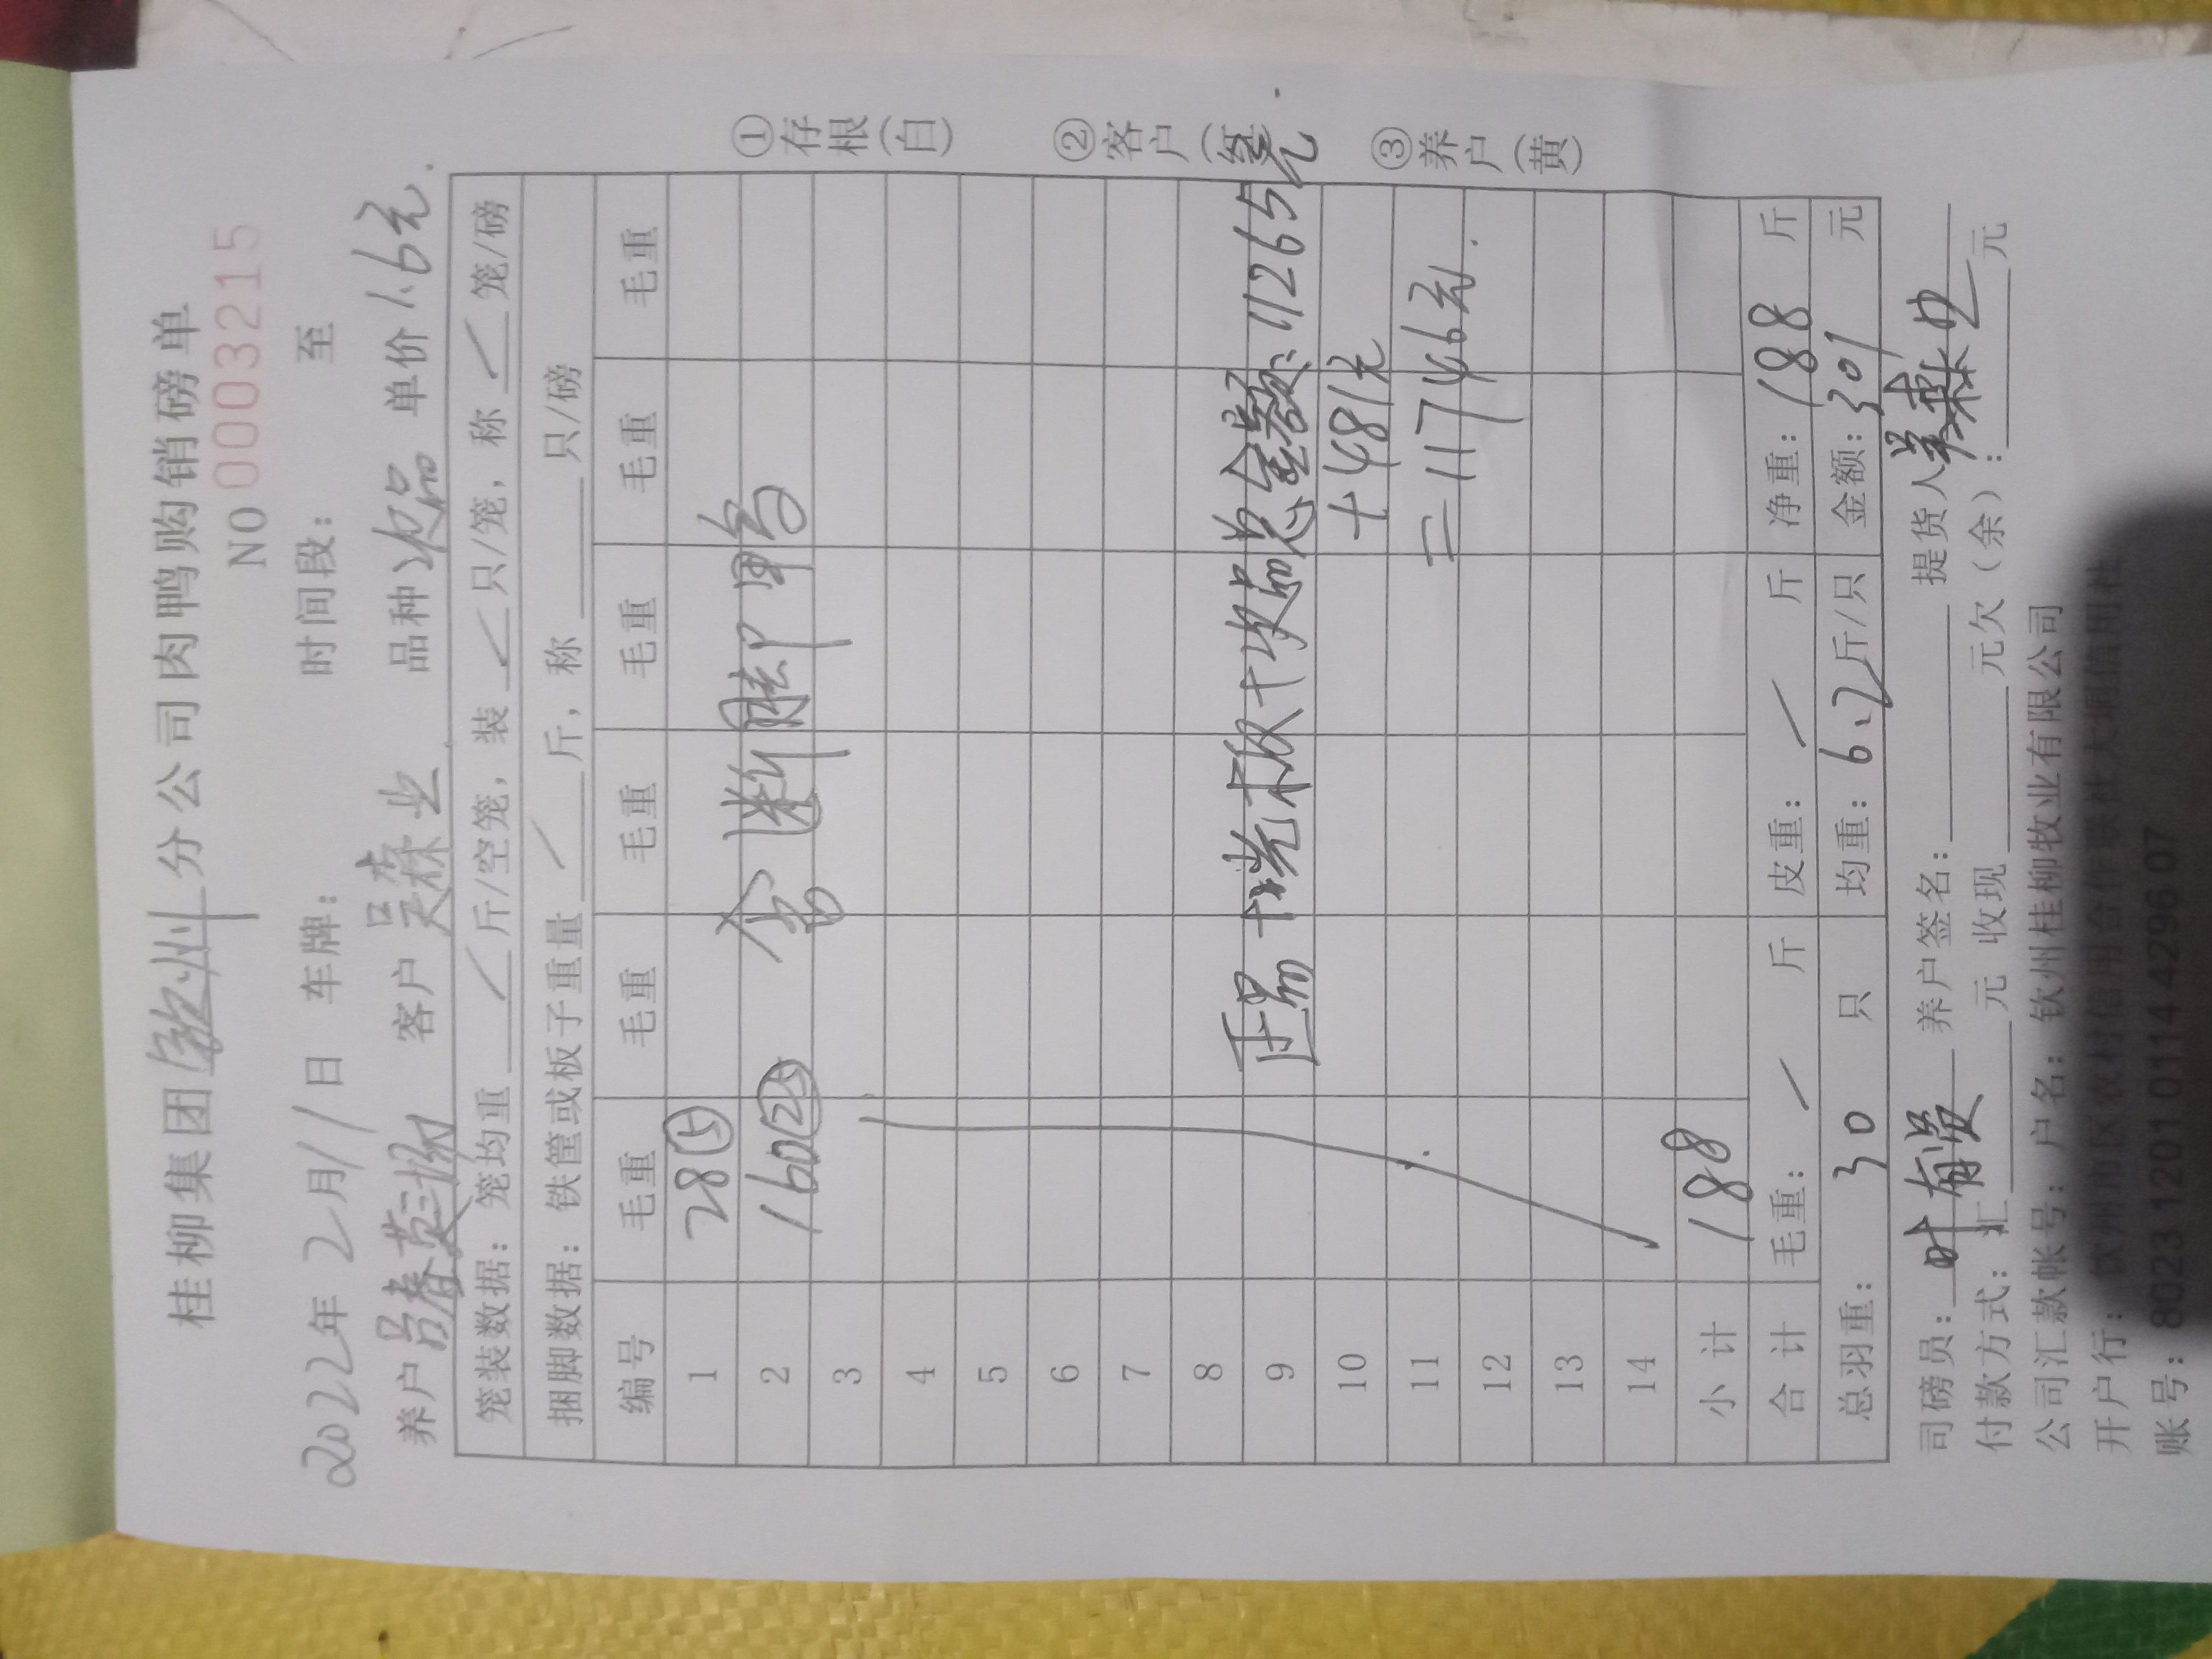 桂柳集团钦州分公司肉鸭购销磅单
NO 0003215
2022年2月11日 车牌: 时间段: 至
养户 客户 吴森业 品种 次品 单价 1.6元.
笼装数据: 笼均重 / 斤/空笼, 装 / 只/笼, 称 / 笼/磅
捆脚数据: 铁筐或板子重量 / 斤, 称 只/磅
编号 毛重 毛重 毛重 毛重 毛重 毛重
1 28⑤
2 160㉕ 含料脚鸭
3
4
5
6
7
8
9 正品+淤板+次品总金额: 11265元
10 +481元
11 =11746元.
12
13
14
小计 188
合计 毛重: / 斤 皮重: / 斤 净重: 188 斤
总羽重: 30 只 均重: 6.2斤/只 金额: 301 元
①存根(白) ②客户(红) ③养户(黄)
司磅员: 养户签名: 提货人 吴森业
付款方式: 汇 元 收现 元欠(余): 元
公司汇款帐号: 户名: 钦州桂柳牧业有限公司
开户行: 钦州市区农村信用合作联社大垌信用社
账号: 8023 1201 0114 4296 07